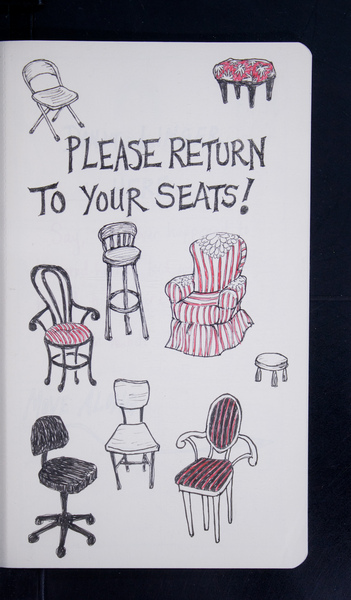 PLEASE RETURN
TO YOUR SEATS!